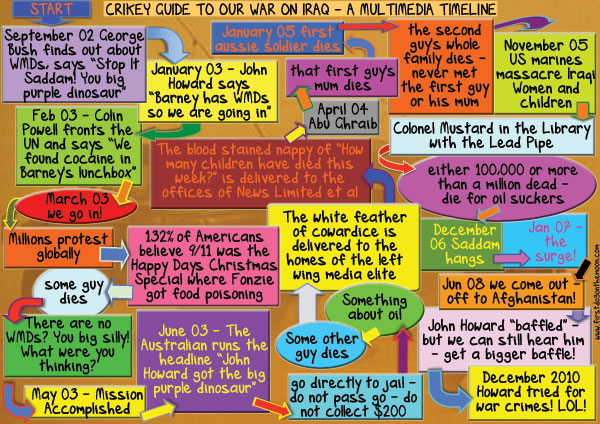 START
CRIKEY GUIDE TO OUR WAR ON IRAQ - A MULTIMEDIA TIMELINE
September 02 George
Bush finds out about
WMDs, says "Stop It
Saddam! You big
purple dinosaur"
January 03 - John
Howard says
"Barney has WMDs
so we are going in"
Feb 03 - Colin
Powell fronts the
UN and says "We
found cocaine in
Barney's lunchbox"
March 03
we go in!
Millions protest
globally
132% of Americans
believe 9/11 was the
Happy Days Christmas
Special where Fonzie
got food poisoning
some guy
dies
There are no
WMDs? You big silly!
What were you
thinking?
May 03 - Mission
Accomplished
June 03 - The
Australian runs the
headline "John
Howard got the big
purple dinosaur"
go directly to jail -
do not pass go - do
not collect $200
Something
about oil
Some other
guy dies
The white feather
of cowardice is
delivered to the
homes of the left
wing media elite
The blood stained nappy of "How
many children have died this
week?" is delivered to the
offices of News Limited et al
April 04
Abu Ghraib
that first guy's
mum dies
January 05 first
aussie soldier dies
the second
guy's whole
family dies -
never met
the first guy
or his mum
November 05
US marines
massacre Iraqi
Women and
children
Colonel Mustard in the Library
with the Lead Pipe
either 100,000 or more
than a million dead -
die for oil suckers
December
06 Saddam
hangs
Jan 07 -
the
surge!
Jun 08 we come out -
off to Afghanistan!
John Howard "baffled"
but we can still hear him
- get a bigger baffle!
December 2010
Howard tried for
war crimes! LOL!
www.firstdogonthemoon.com